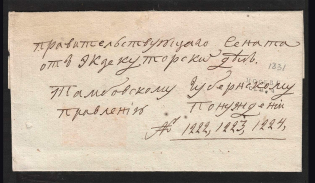 правительствующаго Сената
отъ Экзекуторскихъ дѣлъ.
1831
Тамбовскому Губернскому
Правленію Понужденіи
№ 1222, 1223, 1224,